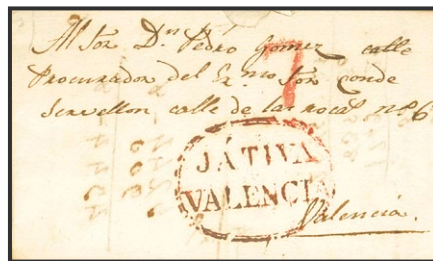 Al Sor. Dn. Pedro Gomez calle
Procurador del Exmo Sor conde
Servellon calle de las rocas nº 6
7
JÁTIVA
VALENCIA
Valencia.